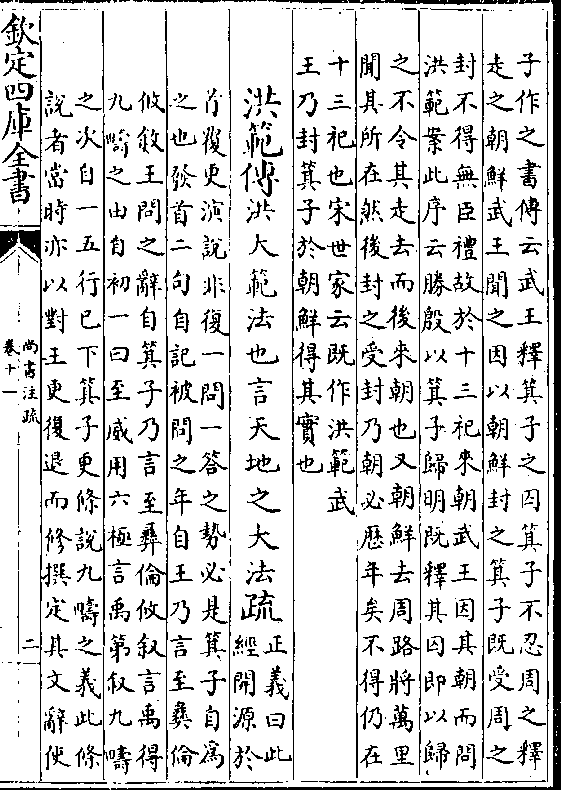 子作之書傳云武王釋箕子之囚箕子不忍周之釋
走之朝鮮武王聞之因以朝鮮封之箕子既受周之
封不得無臣禮故於十三祀來朝武王因其朝而問
洪範案此序云勝殷以箕子歸明既釋其囚即以歸
之不令其走去而後來朝也又朝鮮去周路將萬里
聞其所在然後封之受封乃朝必歴年矣不得仍在
十三祀也宋世家云既作洪範武
王乃封箕子於朝鮮得其實也
洪範傳洪大範法也言天地之大法疏正義曰此
經開源於
首覆更演説非復一問一答之勢必是箕子自為
之也發首二句自記被問之年自王乃言至彝倫
攸敘王問之辭自箕子乃言至彝倫攸叙言禹得
九疇之由自初一曰至威用六極言禹第叙九疇
之次自一五行已下箕子更條説九疇之義此條
説者當時亦以對王更復退而修撰定其文辭使
欽定四庫全書
尚書注疏
卷十一
二